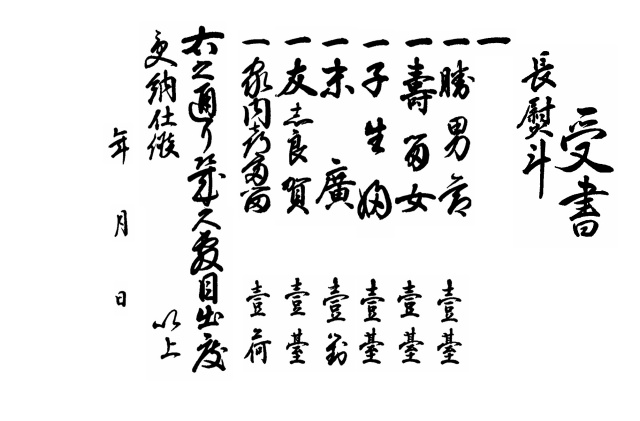 受書
長熨斗
一
一勝男節 壹臺
一壽留女 壹臺
一子生婦 壹臺
一末廣 壹對
一友志良賀 壹臺
一家内喜多留 壹荷
右之通り幾久敷目出度
受納仕候 以上
年 月 日